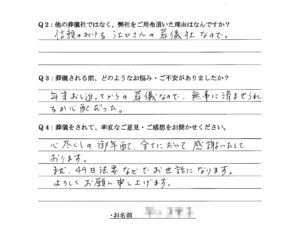 Q2：他の葬儀社ではなく、弊社をご用命頂いた理由はなんですか？
信頼のおける 江口さんの葬儀社なので。
Q3：葬儀される前、どのようなお悩み・ご不安がありましたか？
年末おし迫ってからの葬儀なので、無事に済ませられ
るか心配だった。
Q4：葬儀をされて、率直なご意見・ご感想をお聞かせください。
心尽くしの御手配、全てにおいて感謝いたして
おります。
又、49日法要などでお世話になります。
よろしくお願い申し上げます。
・お名前